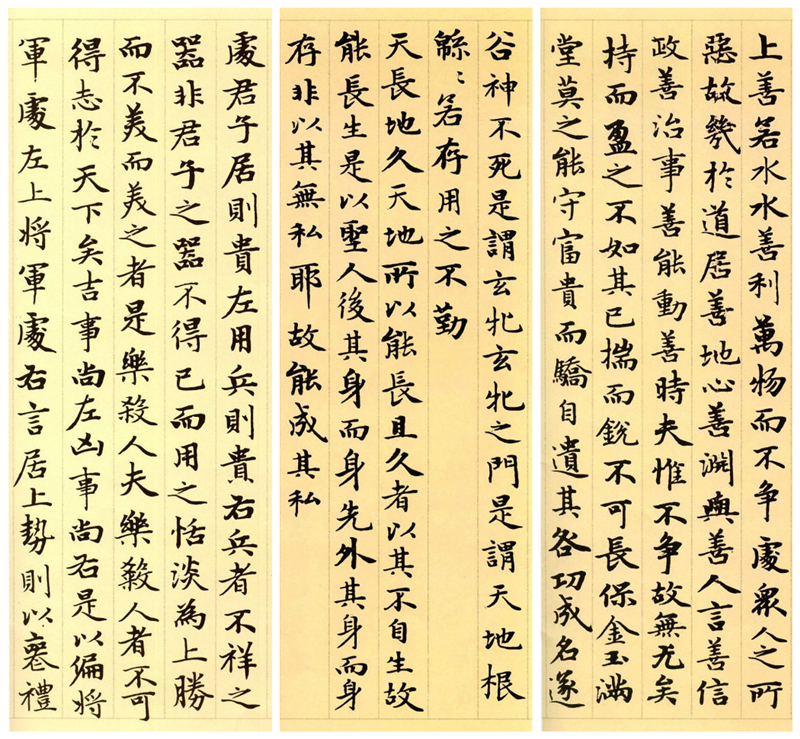 上善若水水善利萬物而不争處眾人之所
惡故幾於道居善地心善淵與善人言善信
政善治事善能動善時夫惟不争故無尤矣
持而盈之不如其已揣而銳不可長保金玉滿
堂莫之能守富貴而驕自遺其咎功成名遂
谷神不死是謂玄牝玄牝之門是謂天地根
緜〻若存用之不勤
天長地久天地所以能長且久者以其不自生故
能長生是以聖人後其身而身先外其身而身
存非以其無私耶故能成其私
處君子居則貴左用兵則貴右兵者不祥之
器非君子之器不得已而用之恬淡為上勝
而不美而美之者是樂殺人夫樂殺人者不可
得志於天下矣吉事尚左凶事尚右是以偏將
軍處左上將軍處右言居上勢則以喪禮